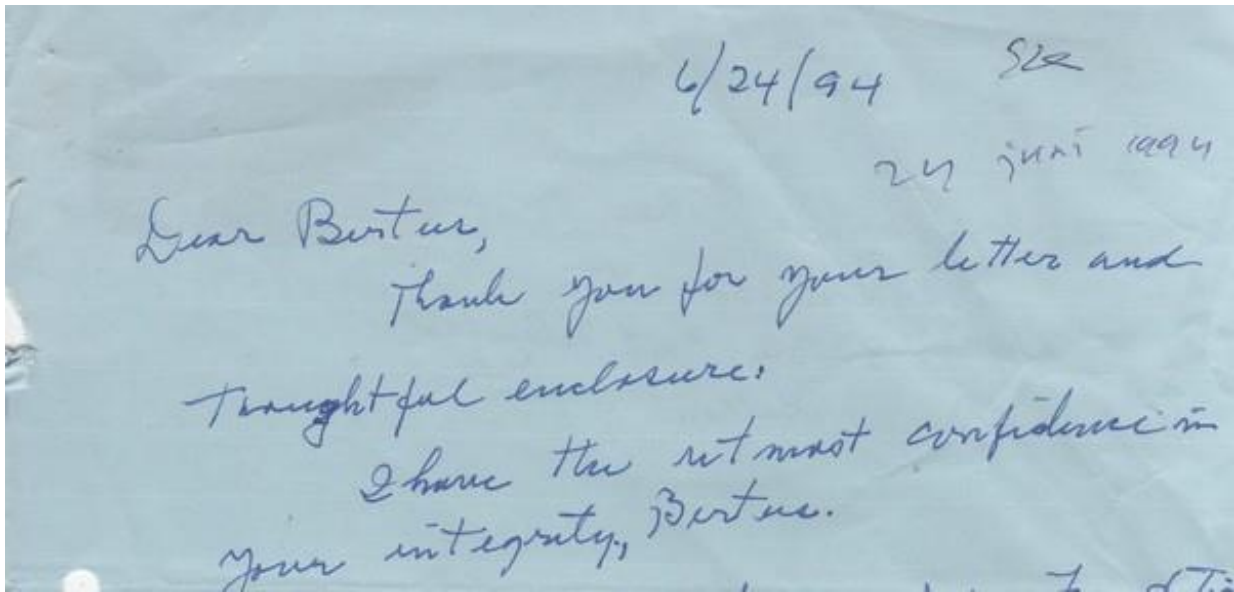 6/24/94
24 juni 1994
Dear Bertus,
Thank you for your letter and
thoughtful enclosure.
I have the utmost confidence in
your integrity, Bertus.